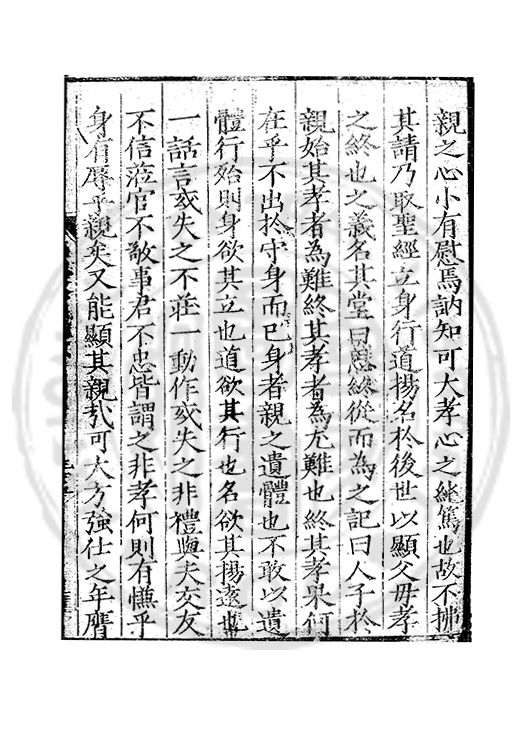 親之心小有慰焉訥知可大孝心之純篤也故不拂
其請乃取聖經立身行道揚名於後世以顯父毋孝
之終也之義名其堂曰思終從而為之記曰人子於
親始其孝者為難終其孝者為尤難也終其孝果何
在乎不出於守身而已身者親之遺體也不敢以遺
體行殆則身欲其立也道欲其行也名欲其揚遠也
一話言或失之不莊一動作或失之非禮與夫交友
不信蒞官不敬事君不忠皆謂之非孝何則有慊乎
身有辱乎親矣又能顯其親哉可大方強仕之年膺